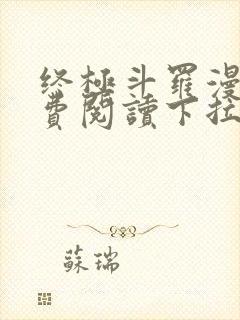 终極斗羅漫
費閱讀下拉
蘇瑞